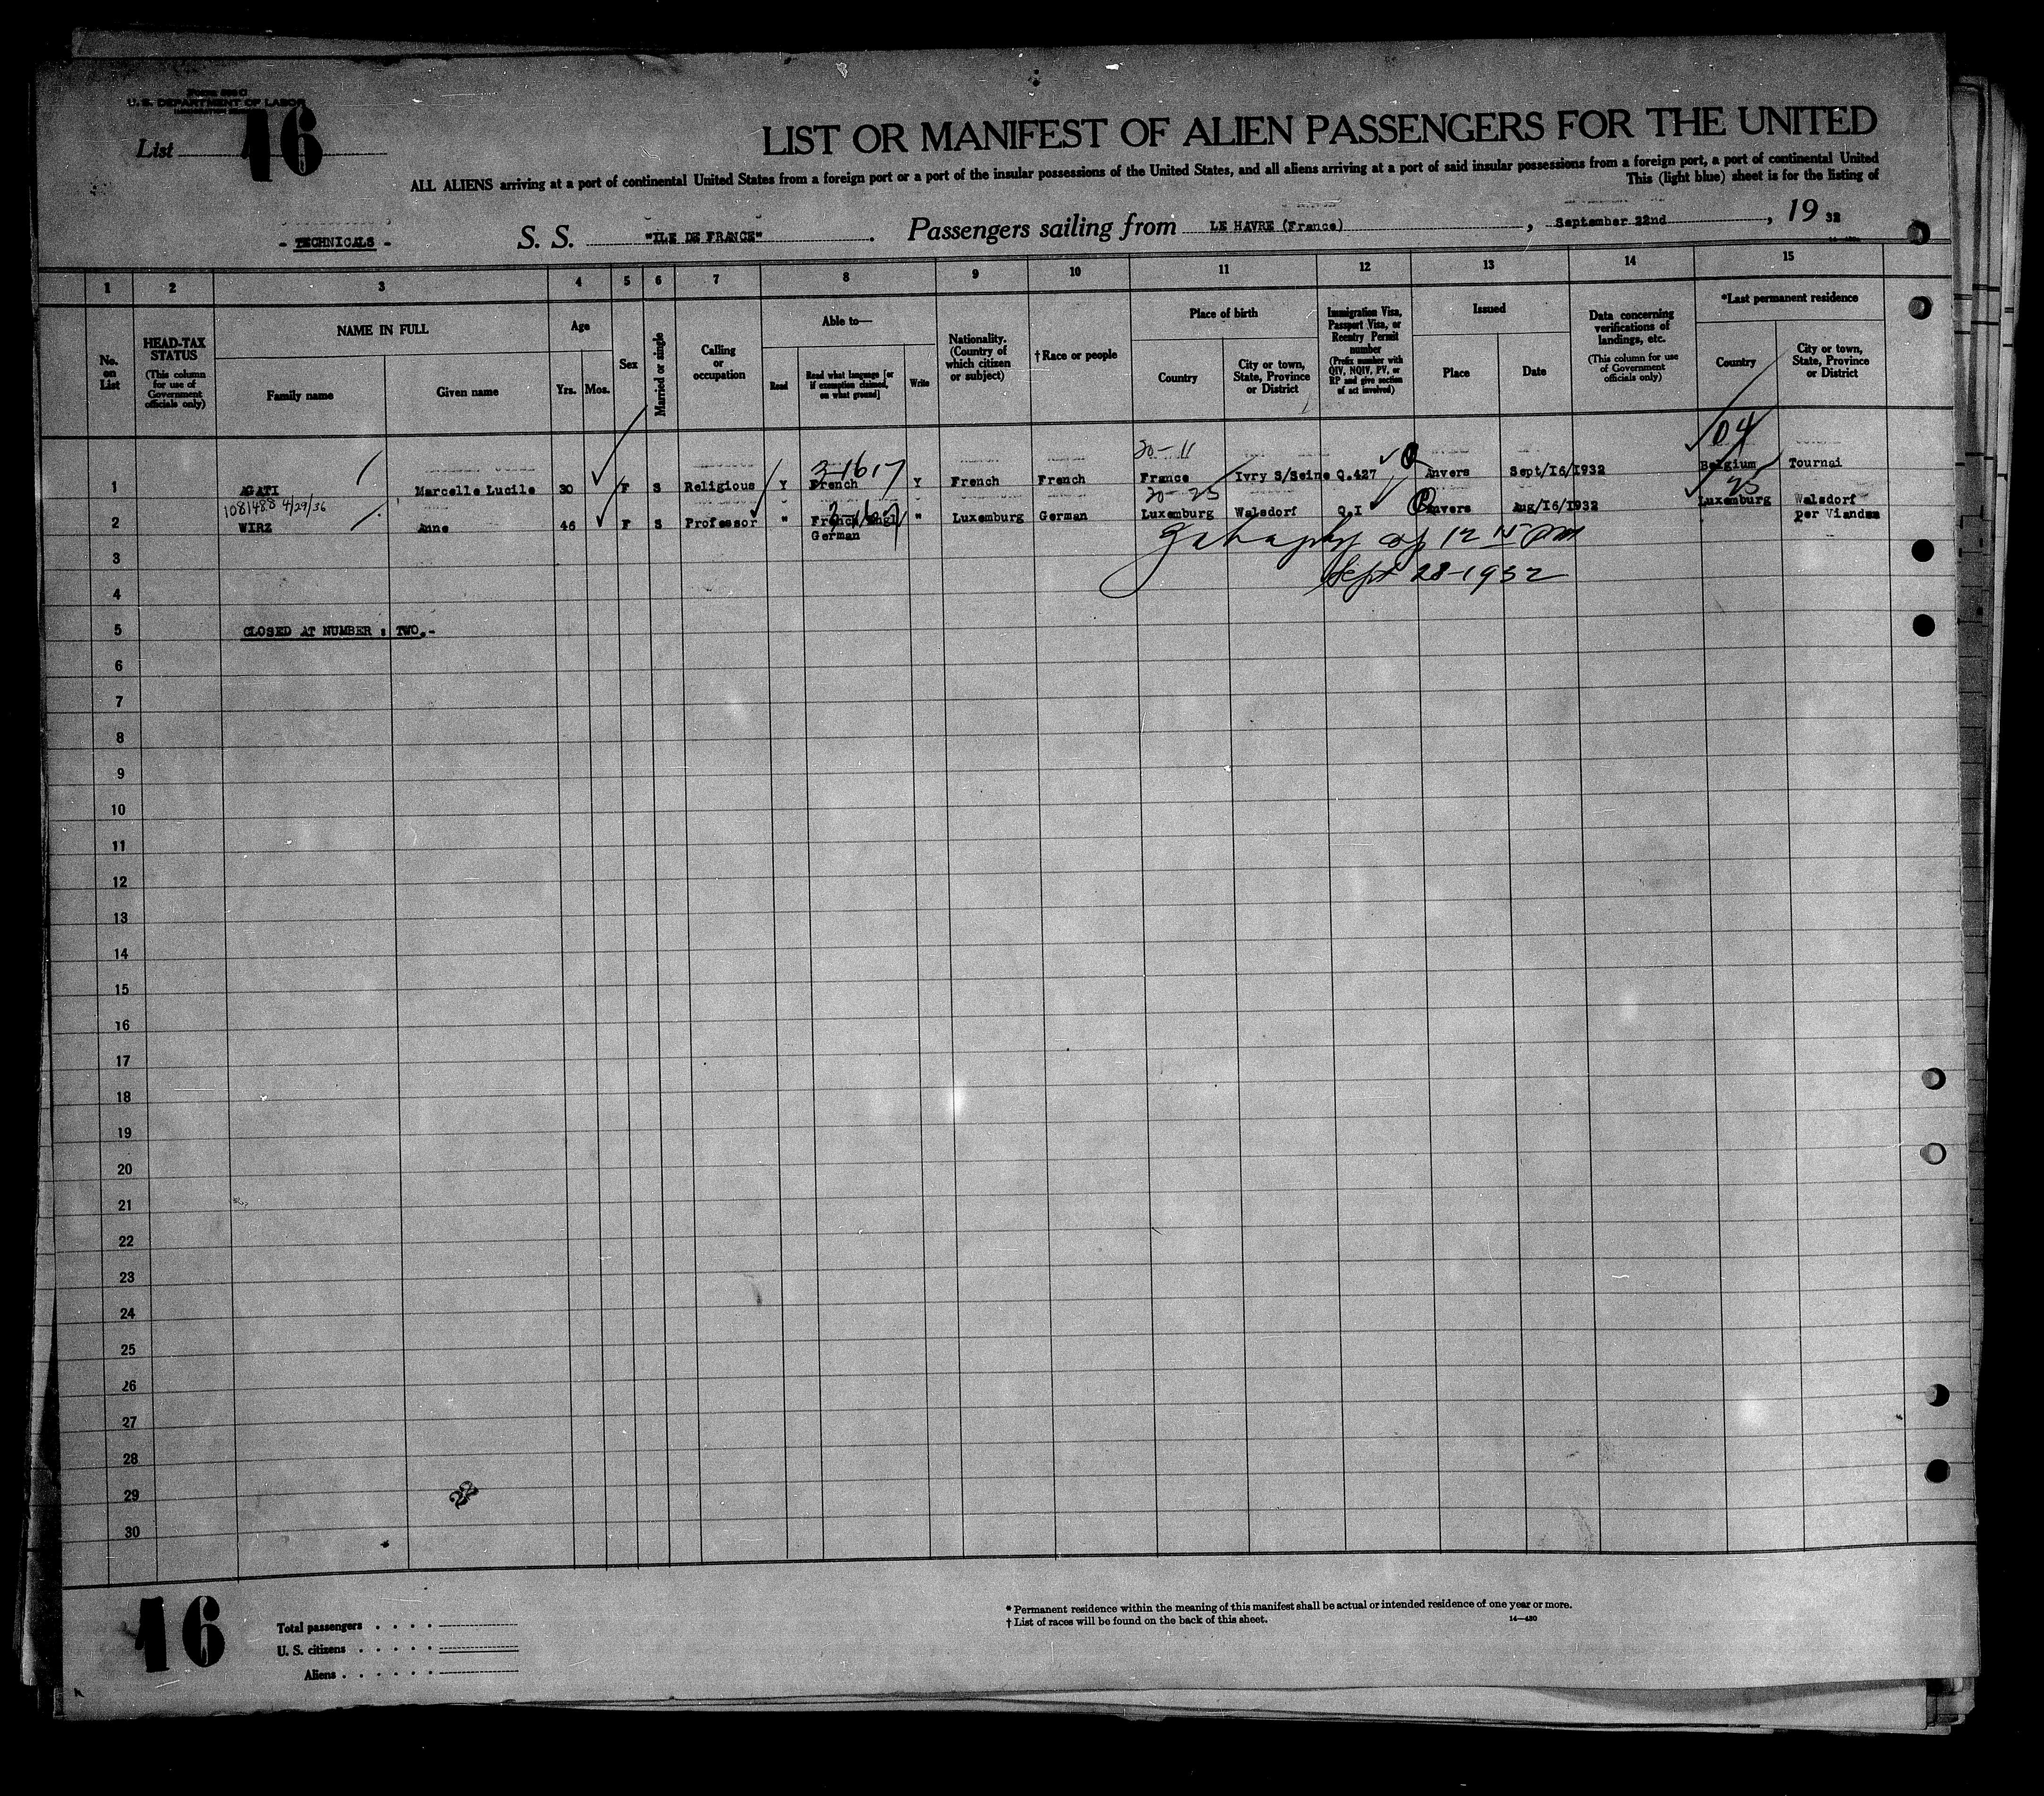 Form 500 C
U. S. DEPARTMENT OF LABOR
List 16
LIST OR MANIFEST OF ALIEN PASSENGERS FOR THE UNITED
ALL ALIENS arriving at a port of continental United States from a foreign port or a port of the insular possessions of the United States, and all aliens arriving at a port of said insular possessions from a foreign port, a port of continental United
This (light blue) sheet is for the listing of
- TECHNICALS - S. S. "ILE DE FRANCE". Passengers sailing from LE HAVRE (France), September 22nd, 19 32
1 2 3 4 5 6 7 8 9 10 11 12 13 14 15
No. on List
HEAD-TAX STATUS
(This column for use of Government officials only)
NAME IN FULL
Family name
Given name
Age
Yrs. Mos.
Sex
Married or single
Calling or occupation
Able to—
Read
Read what language [or if exemption claimed, on what ground]
Write
Nationality. (Country of which citizen or subject)
†Race or people
Place of birth
Country
City or town, State, Province or District
Immigration Visa, Passport Visa, or Reentry Permit number
(Prefix number with QIV, NQIV, PV, or RP and give section of act involved)
Issued
Place
Date
Data concerning verifications of landings, etc.
(This column for use of Government officials only)
*Last permanent residence
Country
City or town, State, Province or District
3-16 17 20-11 04
1 AGATI Marcelle Lucile 30 F S Religious Y French Y French French France Ivry S/Seine Q.427 Anvers Sept/16/1932 Belgium Tournai
1081488 4/29/36 20-25 25
2 WIRZ Anne 46 F S Professor " French Engl " Luxemburg German Luxemburg Walsdorf Q.I Anvers Aug/16/1932 Luxemburg Walsdorf
German per Vianden
3
12 15 PM
4
Sept 28-1932
5 CLOSED AT NUMBER : TWO.-
6
7
8
9
10
11
12
13
14
15
16
17
18
19
20
21
22
23
24
25
26
27
28
29
22
30
16
Total passengers
U. S. citizens
Aliens
* Permanent residence within the meaning of this manifest shall be actual or intended residence of one year or more.
† List of races will be found on the back of this sheet. 14—430